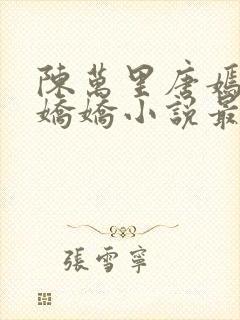 陳萬里唐嫣
嬌嬌小說最
張雪寧